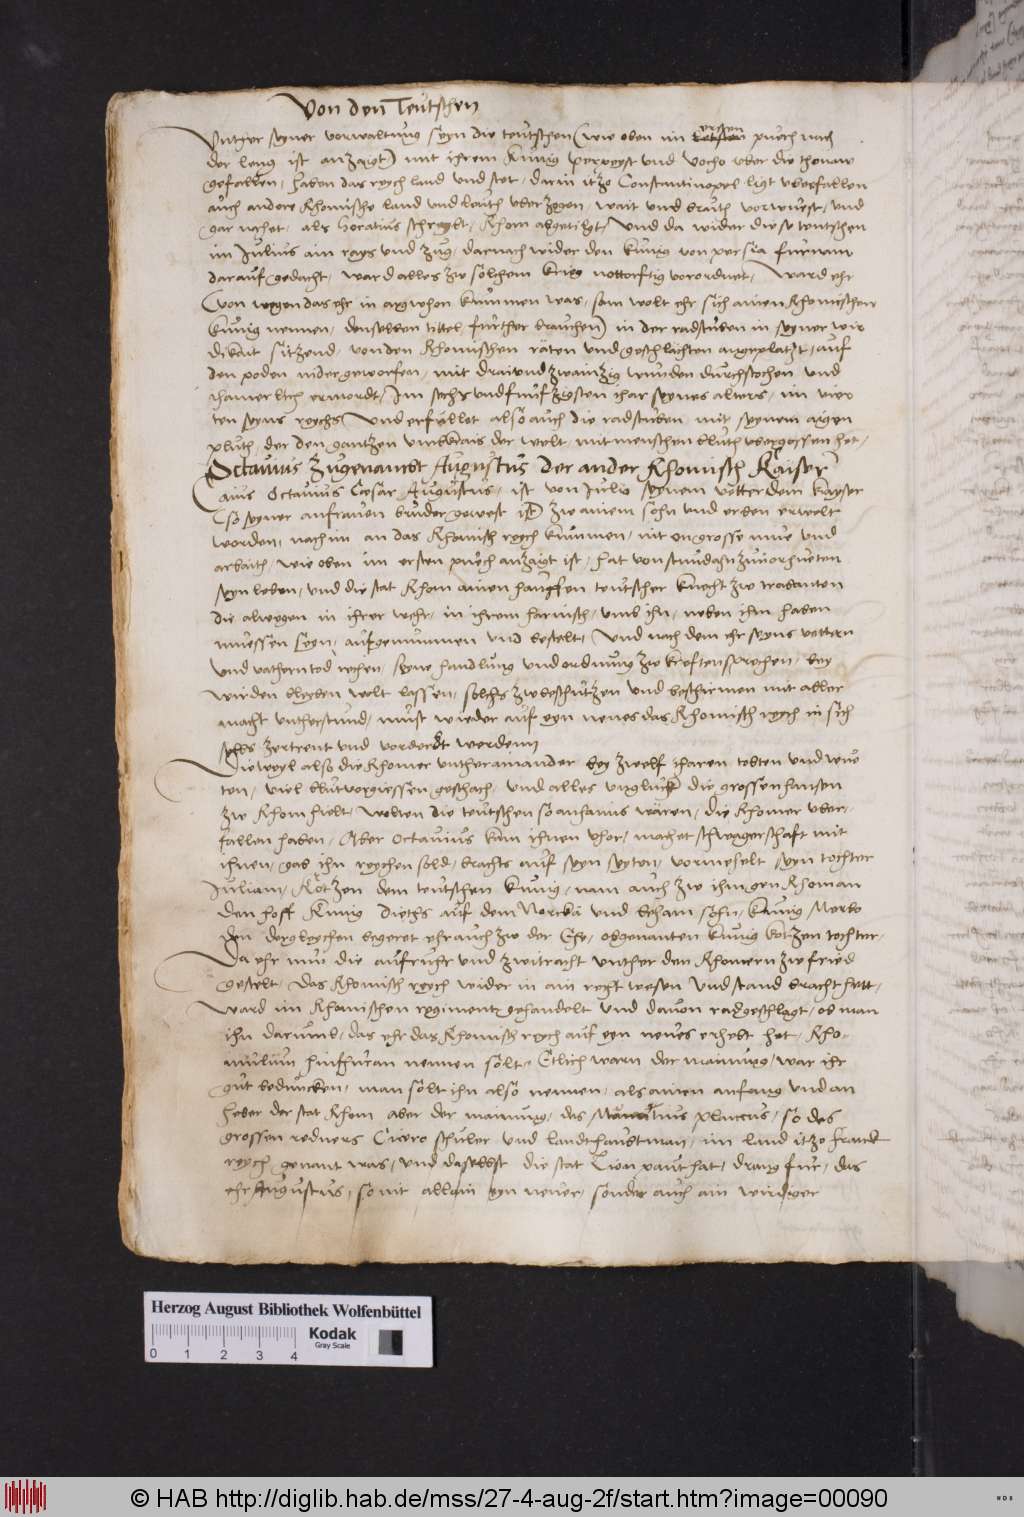 Von den Teutschen
Unther seyner vorwaltung seyn die teutschen (wie oben im ersten puech nach
der leng ist anzaigt) mit ihrem Kunig perreyst und Vocho uber die thonaw
gefallen, haben das reych land und stet, darin itzo Constantinopel ligt uberfallen
auch andere Rhomische land und leuth uber zogen, weit und braith vorwuest, und
gar nehet, als Horatius schreybt, Rhom abgetilgt, Und da wider diese teutschen
im Julius ain rays und zug, darnach wider den kunig von persia furnam
darauf gedacht, ward alles zw solchem krieg nottorftig verordnet, Ward ehr
(von wegen das ehr in argwhon kummen was, sam wolt ehr sich ainen Rhomischen
kunig nennen, denselben tittel further brauchen) in der radstuben in seyner wir
dikait sitzend, von den Rhomischen räten und geschlächten angeplatzt, auf
den poden nider geworfen, mit drai und zwainzig wunden durchstochen und
ihamerlich ermordt, Im sechs und funfzigsten ihar seynes alters, im vier
ten seyns reychs, Und erfullet also auch die radstuben mit seynem aigen
pluth, der den gantzen umbkrais der welt mit menschen bluth ubergossen het,
Octavius Zugenanndt Augustus der ander Rhomisch Kaiser
Caius Octavius Caesar Augustus, ist von Julio seynem vetter dem kayser
(so seyner anfrauen bruder gewest ist) zw ainem sohn und erben erwelt
worden, nach im an das Rhomisch reych kummen, nit on grosse mue und
arbaith, wie oben im ersten puech anzaigt ist, hat von stundan zuvorhueten
seyn leben, und die stat Rhom ainen hauffen teutscher knecht zw trabanten
die alwegen in ihrer wehr, in ihrem harnisch, umb ihn, neben ihm haben
muessen seyn, aufgenummen und bestelt, Und nach dem ehr seyns vettern
und vathern tod rechen, seyne handlung und ordnung zw kreften sprechen, bey
wirden bleyben wolt lassen, solchs zw beschutzen und beschirmen mit aller
macht unterstund, must wieder auf eyn neues das Rhomisch reych in sich
selbs zertrent und vorderbt werdenn
Dieweyl also die Rhomer unther ainander bey zwelf iharen tobten und wue
ten, viel blutvorgiessen geschach, und alles ungluck die grossen hansen
zw Rhom hielt, wolten die teutschen so anhaims wären, die Rhomer uber-
fallen haben, Aber Octavius kam ihnen vhor, machet schwagerschaft mit
ihnen, gab ihn reychen sold, brachts auf seyn seyten, vormehelt seyn tochter
Juliam, Kotzen dem teutschen kunig, nam auch zw ihm gen Rhom an
den hoff Kunig dieths auf dem Norikä und beham sohn, kunig Merbo
den dergleychen begeret ehr auch zw der Ehe, obgenanten kunig kotzen tochter,
Da ehr nuw die aufruhr und zwitracht unther den Rhomern zw fried
gestelt, das Rhomisch reych wider in ain recht wesen und stand bracht hett,
Ward im Rhomischen regiment gehandelt und davon radgeschlagt, ob man
ihn darumb, das ehr das Rhomisch reych auf eyn neues erhebt het, Rho-
mulum hinfhuran nennen solt, Etlich warn der mainung, war ihr
gut bedunken, man solt ihn also nennen, als ainen anfang und an
heber der stat Rhom aber der mainung, des plancus, so des
grossen redners Cicero schuler und landthaubtman, im land itzo Franck
reych genant was, und daselbst die stat Lion paut hat, drang fur, das
ehr Augustus, so nit allain eyn neuer, sonder auch ain wirdiger
Herzog August Bibliothek Wolfenbüttel
Kodak
Gray Scale
0 1 2 3 4
© HAB http://diglib.hab.de/mss/27-4-aug-2f/start.htm?image=00090